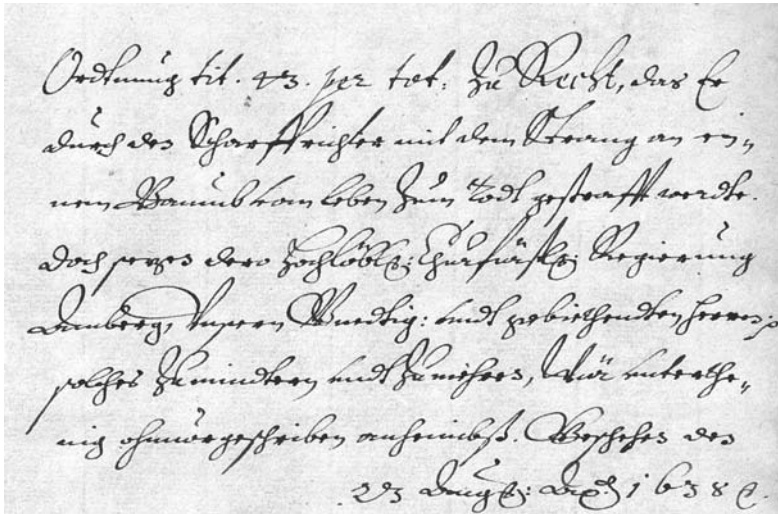 Ordtnung tit. 43. per tot: Zu Recht, das Er
durch den Scharffrichter mit dem Strang an ein„
nem Baumb vom leben zum Todt gestrafft werdte.
doch seyes dero Hochlöbl: Churfürstl: Regierung
Amberg, Unsern Gnedtig: undt gebiethendten herren:
solches zumindtern undt zumehren, Wür unterthe„
nig ohnvorgeschriben anheimbß. Geschehen den
23 Aug: A: 1638